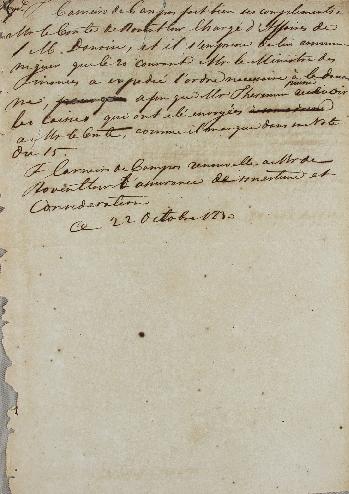 F Carneiro de Campos fait bien ses compliments à
Mr le Comte de Chargé d'Affaires de
S. M. Danoise, et il s'empresse de lui commu-
niquer que le 20 courant Mr le Ministre des
Finances a expedié l'ordre necessaire à la doua
ne, afin que Mr puisse recevoir
les caisses qui ont été envoyées
a Mr le Comte, comme il marque dans sa Note
du 15.
F Carneiro de Campos renouvelle a Mr de
l'assurance de son estime et
Consideration.
Ce 22 Octobre